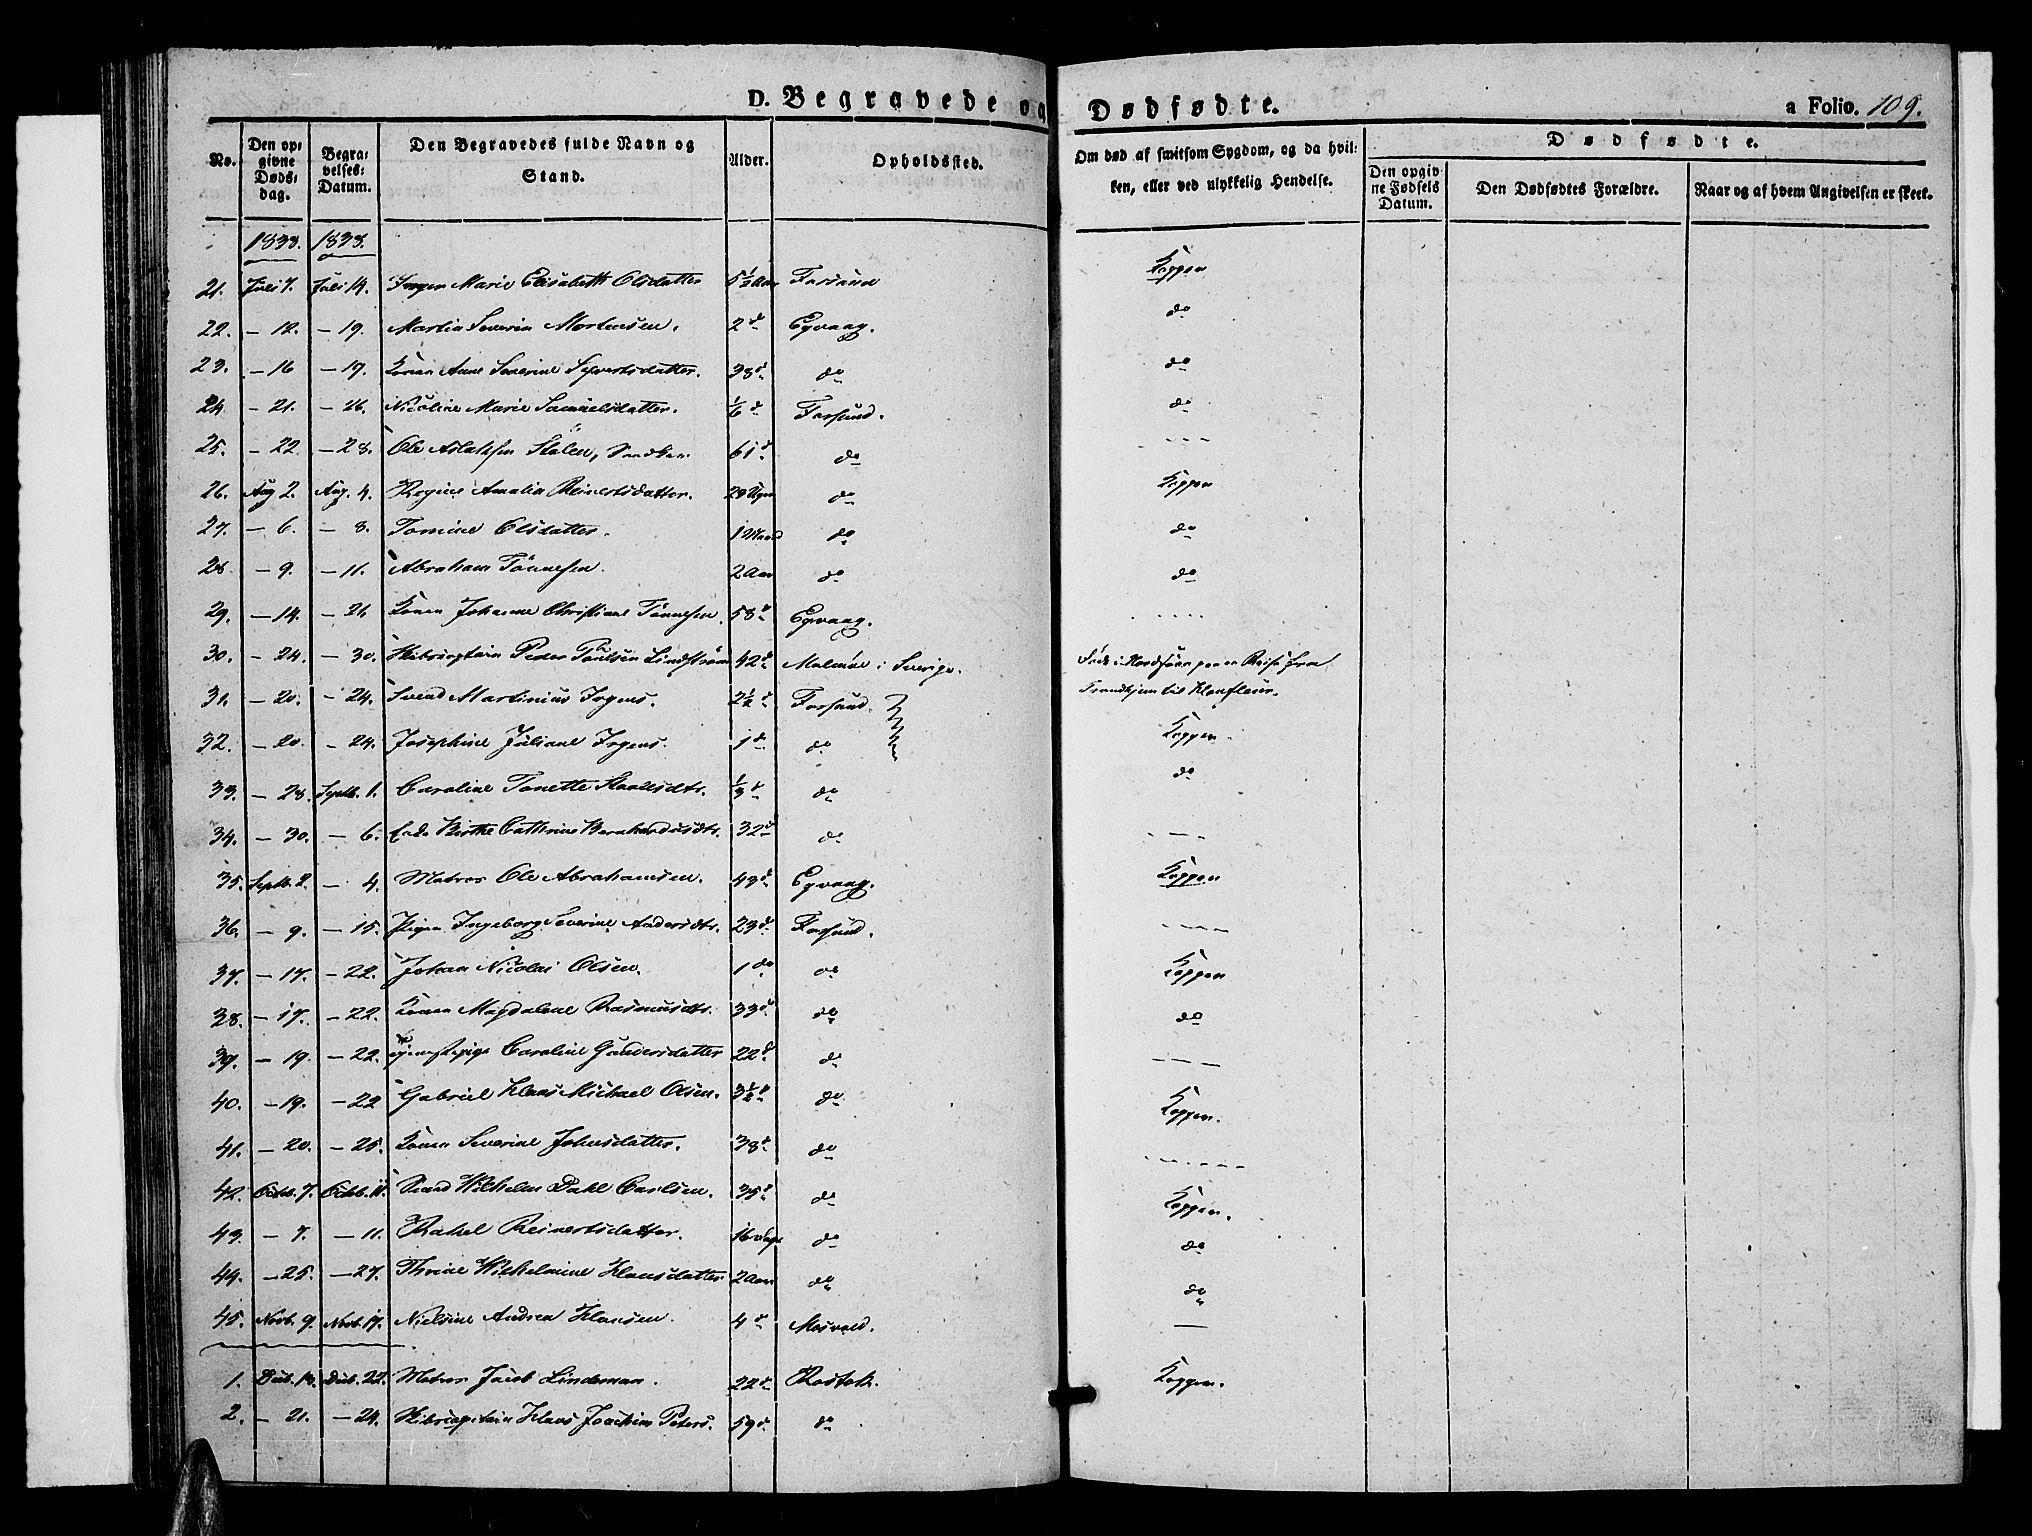 D. Begravede og Dødfødte. a Folio. 109.
No. Den opgivne Dødsdag. Begravelses-Datum. Den Begravedes fulde Navn og Stand. Alder. Opholdssted. Om død af smitsom Sygdom, og da hvilken, eller ved ulykkelig Hendelse. Dødfødte.
Den opgivne Fødsels Datum. Den Dødfødtes Forældre. Naar og af hvem Angivelsen er skeet.
1838. 1838.
21. Juli 7. Juli 14. Inger Marie Elisabeth Olsdatter 5½ Aar Farsund Kopper
22. – 12. – 19. Martin Severin Mortensen. 2 d Egvaag. do
23. – 16 – 17. Konen Anne Severine Syvertsdatter. 38 d do do
24. – 21. – 26. Nicoline Marie Samuelsdatter. 1/6 d Farsund. do
25. – 22. – 28. Ole Aslaksen 61 d do - - - -
26. Aug 2. Aug. 4. Regine Amalia Reinertsdatter. do Kopper
27. – 6. – 8. Tomine Olsdatter. 1 Maaned do do
28. – 9. – 11. Abraham Tönnesen. 2 Aar do do
29. – 14. – 21. Konen Johanne Christiane Tönnesen. 58 d Egvaag. - - - -
30. – 24. – 30. Skibscaptain Peder Poulsen Lindström 42 d Malmöe i Sverige. Död i Nordsöen paa en Reise fra
Trondhjem til
31. – 20. – 24. Svend Martinius Jrgens. 2½ d Farsund.
32. – 20. – 24. Josephine Juliane Jrgens. 1 d do Kopper.
33. – 28. Septb. 1. Caroline Tonette 1/3 d do do
34. – 30. – 6. Enke Birthe Cathrine Bernhardusdtr. 32 d do - — -
35. Septb. 2. – 4. Matros Ole Abrahamsen. 43 d Egvaag. Kopper
36. – 9. – 15. Pigen Ingeborg Severine Andersdtr. 23 d Farsund. - - - -
37. – 17. – 22. Johan Nicolai Olsen. 1 do do Kopper
38. – 17. – 22. Konen Magdalene Rasmusdtr. 33 d do do
39. – 19. – 22. Tjenestepige Caroline Gundersdatter 22 d do — — —
40. – 19. – 22 Gabriel Klaus Michael Olsen. 3½ d do Kopper.
41. – 20. – 25. Konen Severine Johnsdatter. 38 d do - - - - -
42. Octb. 7. Octb. 11. Wilhelm Dahl Carlsen. 35 d do Kopper.
43. – 7. – 11. Rakel Reinertsdatter. 16 Dage do do
44. – 25. – 27. Thrine Wilhelmine Klausdatter 2 Aar do do
45. Novb. 9. Novb. 17. Nielsine Andrea Klausen. 4 d Mosvold. —
1. Dcb. 13. Dcb. 22. Matros Jacob Lindeman. 22 d Rostok. Kopper.
2. – 21. – 24. Skibscapitain Klaus Joachim Peters. 59 d do